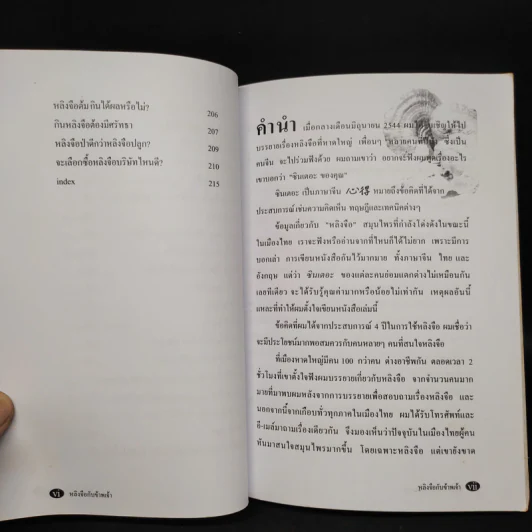 หลิงจือต้ม กินได้ผลหรือไม่? 206
กินหลิงจือต้องมีศรัทธา 207
หลิงจือป่าดีกว่าหลิงจือปลูก? 209
จะเลือกซื้อหลิงจือบริษัทไหนดี? 210
index 215
vi หลิงจือกับข้าพเจ้า
คำนำ เมื่อกลางเดือนมิถุนายน 2544 ผมได้รับเชิญให้ไป
บรรยายเรื่องหลิงจือที่หาดใหญ่ เพื่อนๆ หลายคนที่ ซึ่งเป็น
คนจีน จะไปร่วมฟังด้วย ผมถามเขาว่า อยากจะฟังผมพูดเรื่องอะไร
เขาบอกว่า "ซินเตอะ ของคุณ"
ซินเตอะ เป็นภาษาจีน 心得 หมายถึงข้อคิดที่ได้จาก
ประสบการณ์เช่นความคิดเห็น ทฤษฎีและเทคนิคต่างๆ
ข้อมูลเกี่ยวกับ "หลิงจือ" สมุนไพรที่กำลังโด่งดังในขณะนี้
ในเมืองไทย เราจะฟังหรืออ่านจากที่ไหนก็ได้ไม่ยาก เพราะมีการ
บอกเล่า การเขียนหนังสือกันไว้มากมาย ทั้งภาษาจีน ไทย และ
อังกฤษ แต่ว่า ซินเตอะ ของแต่ละคนย่อมแตกต่างไม่เหมือนกัน
เลยทีเดียว จะได้รับรู้คุณค่ามากหรือน้อยไม่เท่ากัน เหตุผลอันนี้
แหละที่ทำให้ผมตั้งใจเขียนหนังสือเล่มนี้
ข้อคิดที่ผมได้จากประสบการณ์ 4 ปีในการใช้หลิงจือ ผมเชื่อว่า
จะมีประโยชน์มากพอสมควรกับคนหลายๆ คนที่สนใจหลิงจือ
ที่เมืองหาดใหญ่มีคน 100 กว่าคน ต่างอาชีพกัน ตลอดเวลา 2
ชั่วโมงที่เขาตั้งใจฟังผมบรรยายเกี่ยวกับหลิงจือ จากจำนวนคนมาก
มายที่มาพบผมหลังจากการบรรยายเพื่อสอบถามเรื่องหลิงจือ และ
นอกจากนี้จากเกือบทั่วทุกภาคในเมืองไทย ผมได้รับโทรศัพท์และ
อี-เมล์มาถามเรื่องเดียวกัน จึงมองเห็นว่าปัจจุบันในเมืองไทยผู้คน
หันมาสนใจสมุนไพรมากขึ้น โดยเฉพาะหลิงจือ แต่เขายังขาด
หลิงจือกับข้าพเจ้า vii